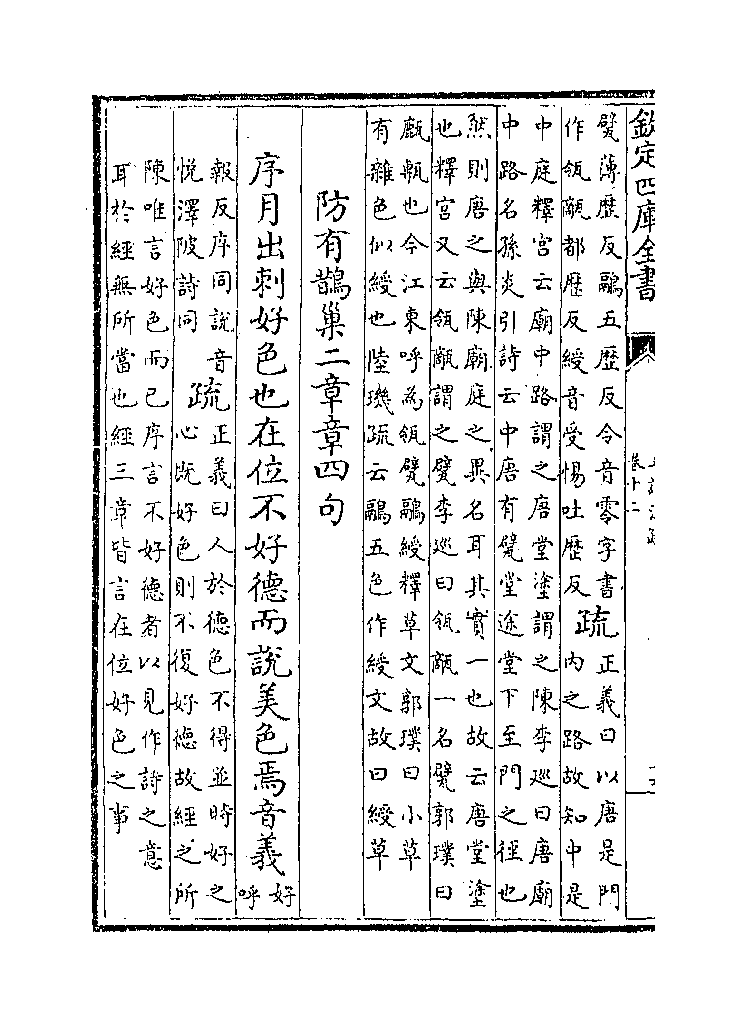 欽定四庫全書
卷十二
甓薄歴反鷊五歴反令音零字書
作瓴甋都歴反綬音受惕吐歴反
疏
正義曰以唐是門
内之路故知中是
中庭釋宫云廟中路謂之唐堂塗謂之陳李巡曰唐廟
中路名孫炎引詩云中唐有甓堂途堂下至門之徑也
然則唐之與陳廟庭之異名耳其實一也故云唐堂塗
也釋宫又云瓴甋謂之甓李巡曰瓴甋一名甓郭璞曰
㼾甎也今江東呼為瓴甓鷊綬釋草文郭璞曰小草
有雜色似綬也陸璣疏云鷊五色作綬文故曰綬草
防有鵲巢二章章四句
序月出刺好色也在位不好德而說美色焉音義
好
呼
報反序同說音
悅澤陂詩同
疏
正義曰人於德色不得並時好之
心既好色則不復好德故經之所
陳唯言好色而已序言不好德者以見作詩之意
耳於經無所當也經三章皆言在位好色之事